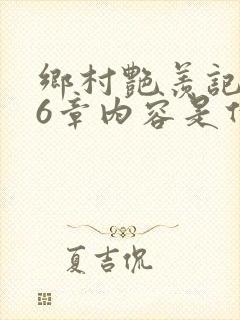 鄉村艷羨記
6章內容是什
夏吉侃